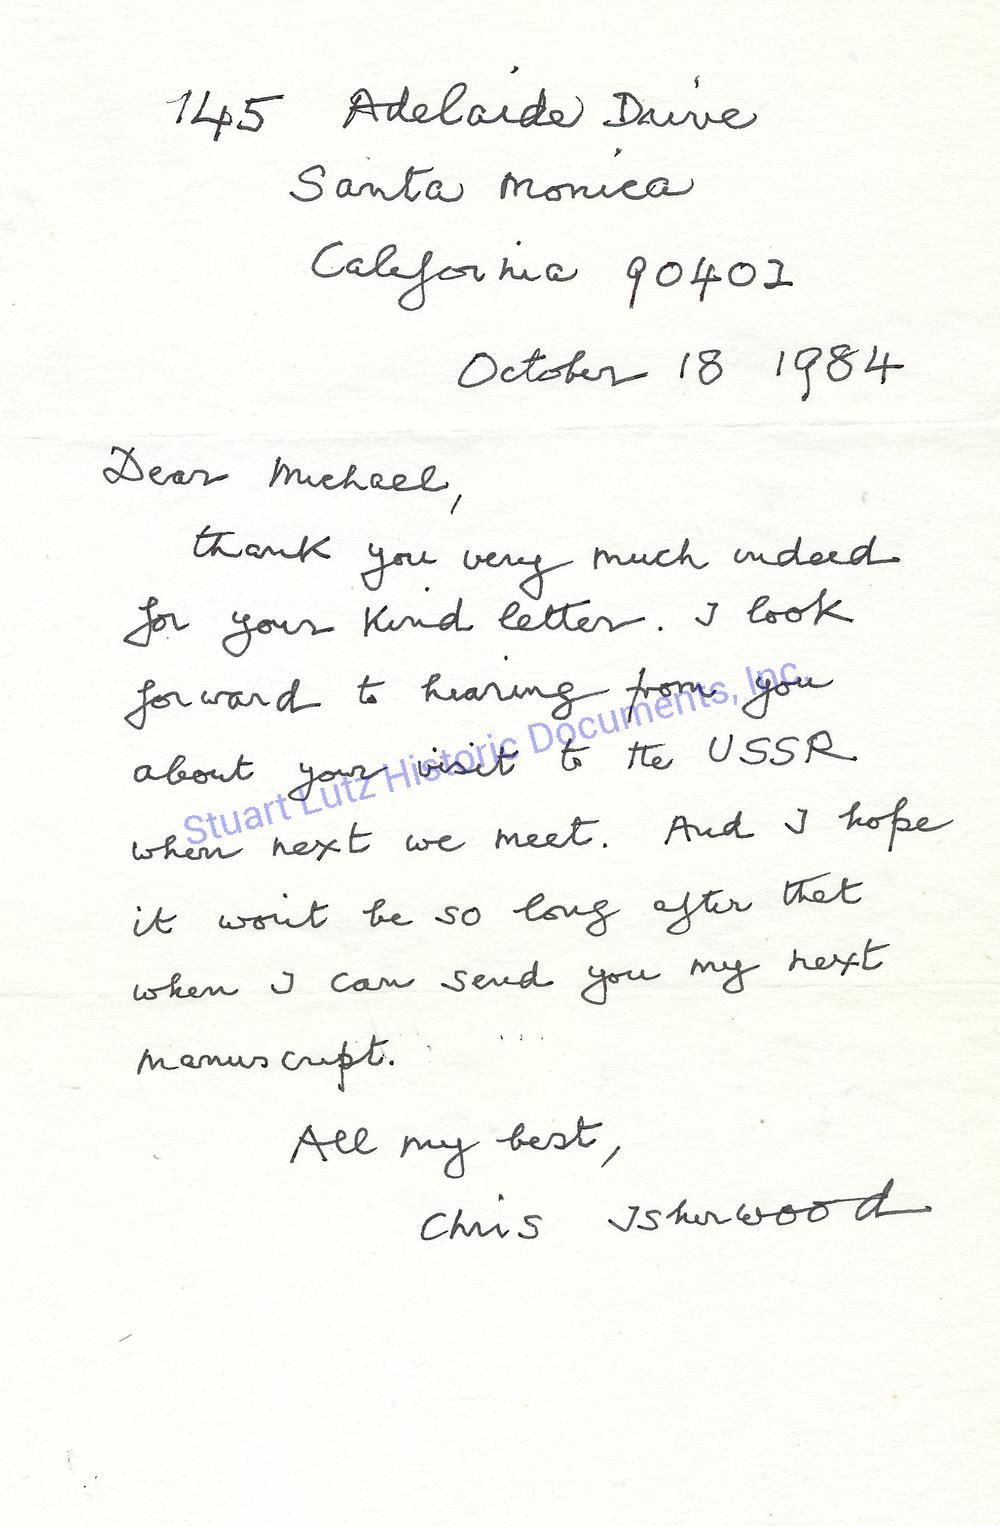 145 Adelaide Drive
Santa Monica
California 90402
October 18 1984
Dear Michael,
thank you very much indeed
for your kind letter. I look
forward to hearing from you
about your visit to the USSR
when next we meet. And I hope
it won't be so long after that
when I can send you my next
manuscript.
All my best,
Chris Isherwood
Stuart Lutz Historic Documents, Inc.